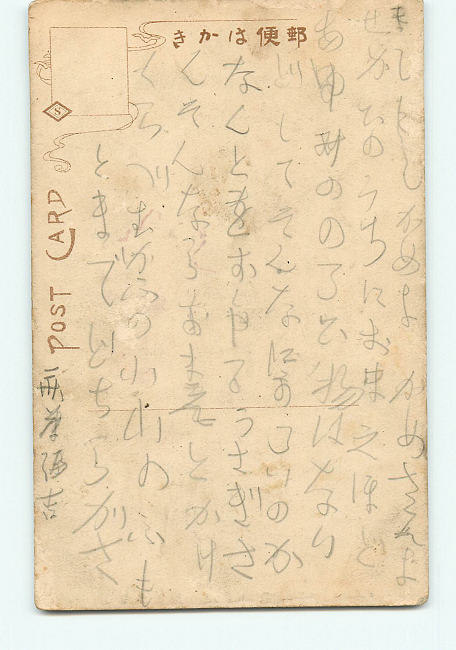 郵便はかき
もしもしかめよ かめさんよ
せかいのうちにおまえほど
あゆみののろい物はない
どしてそんなにのろいのか
なんとをおしやるうさぎさ
んそんならおまえとかけ
くらべむかふの小山のふも
とまでどちらがさ
POST CARD
S